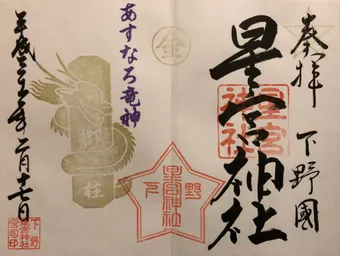 奉拝 下野國
星宮神社
星宮神社
金
あすなろ竜神
御柱
下野
星宮神社
平成三十一年二月十七日